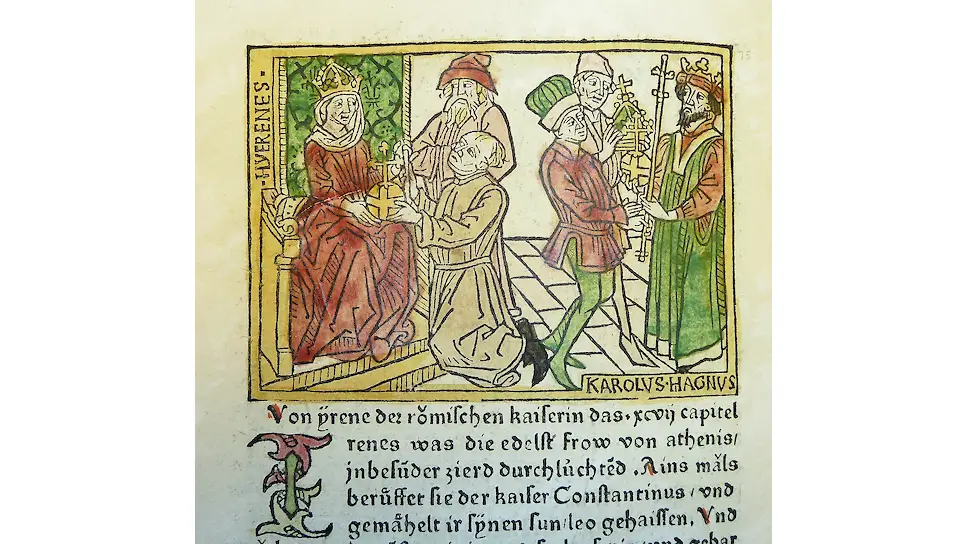 ·HYERENES·
KAROLVS·MAGNVS
Von ÿrene der roͤmischen kaiserin das·xcvij capitel
Irenes was die edelst frow von athenis/
jnbesūder zierd durchlúchtēd. Ains maͤls
beruͤffet sie der kaiser Constantinus/vnd
gemaͤhelt ir sÿnen sun/leo gehaissen. Vnd